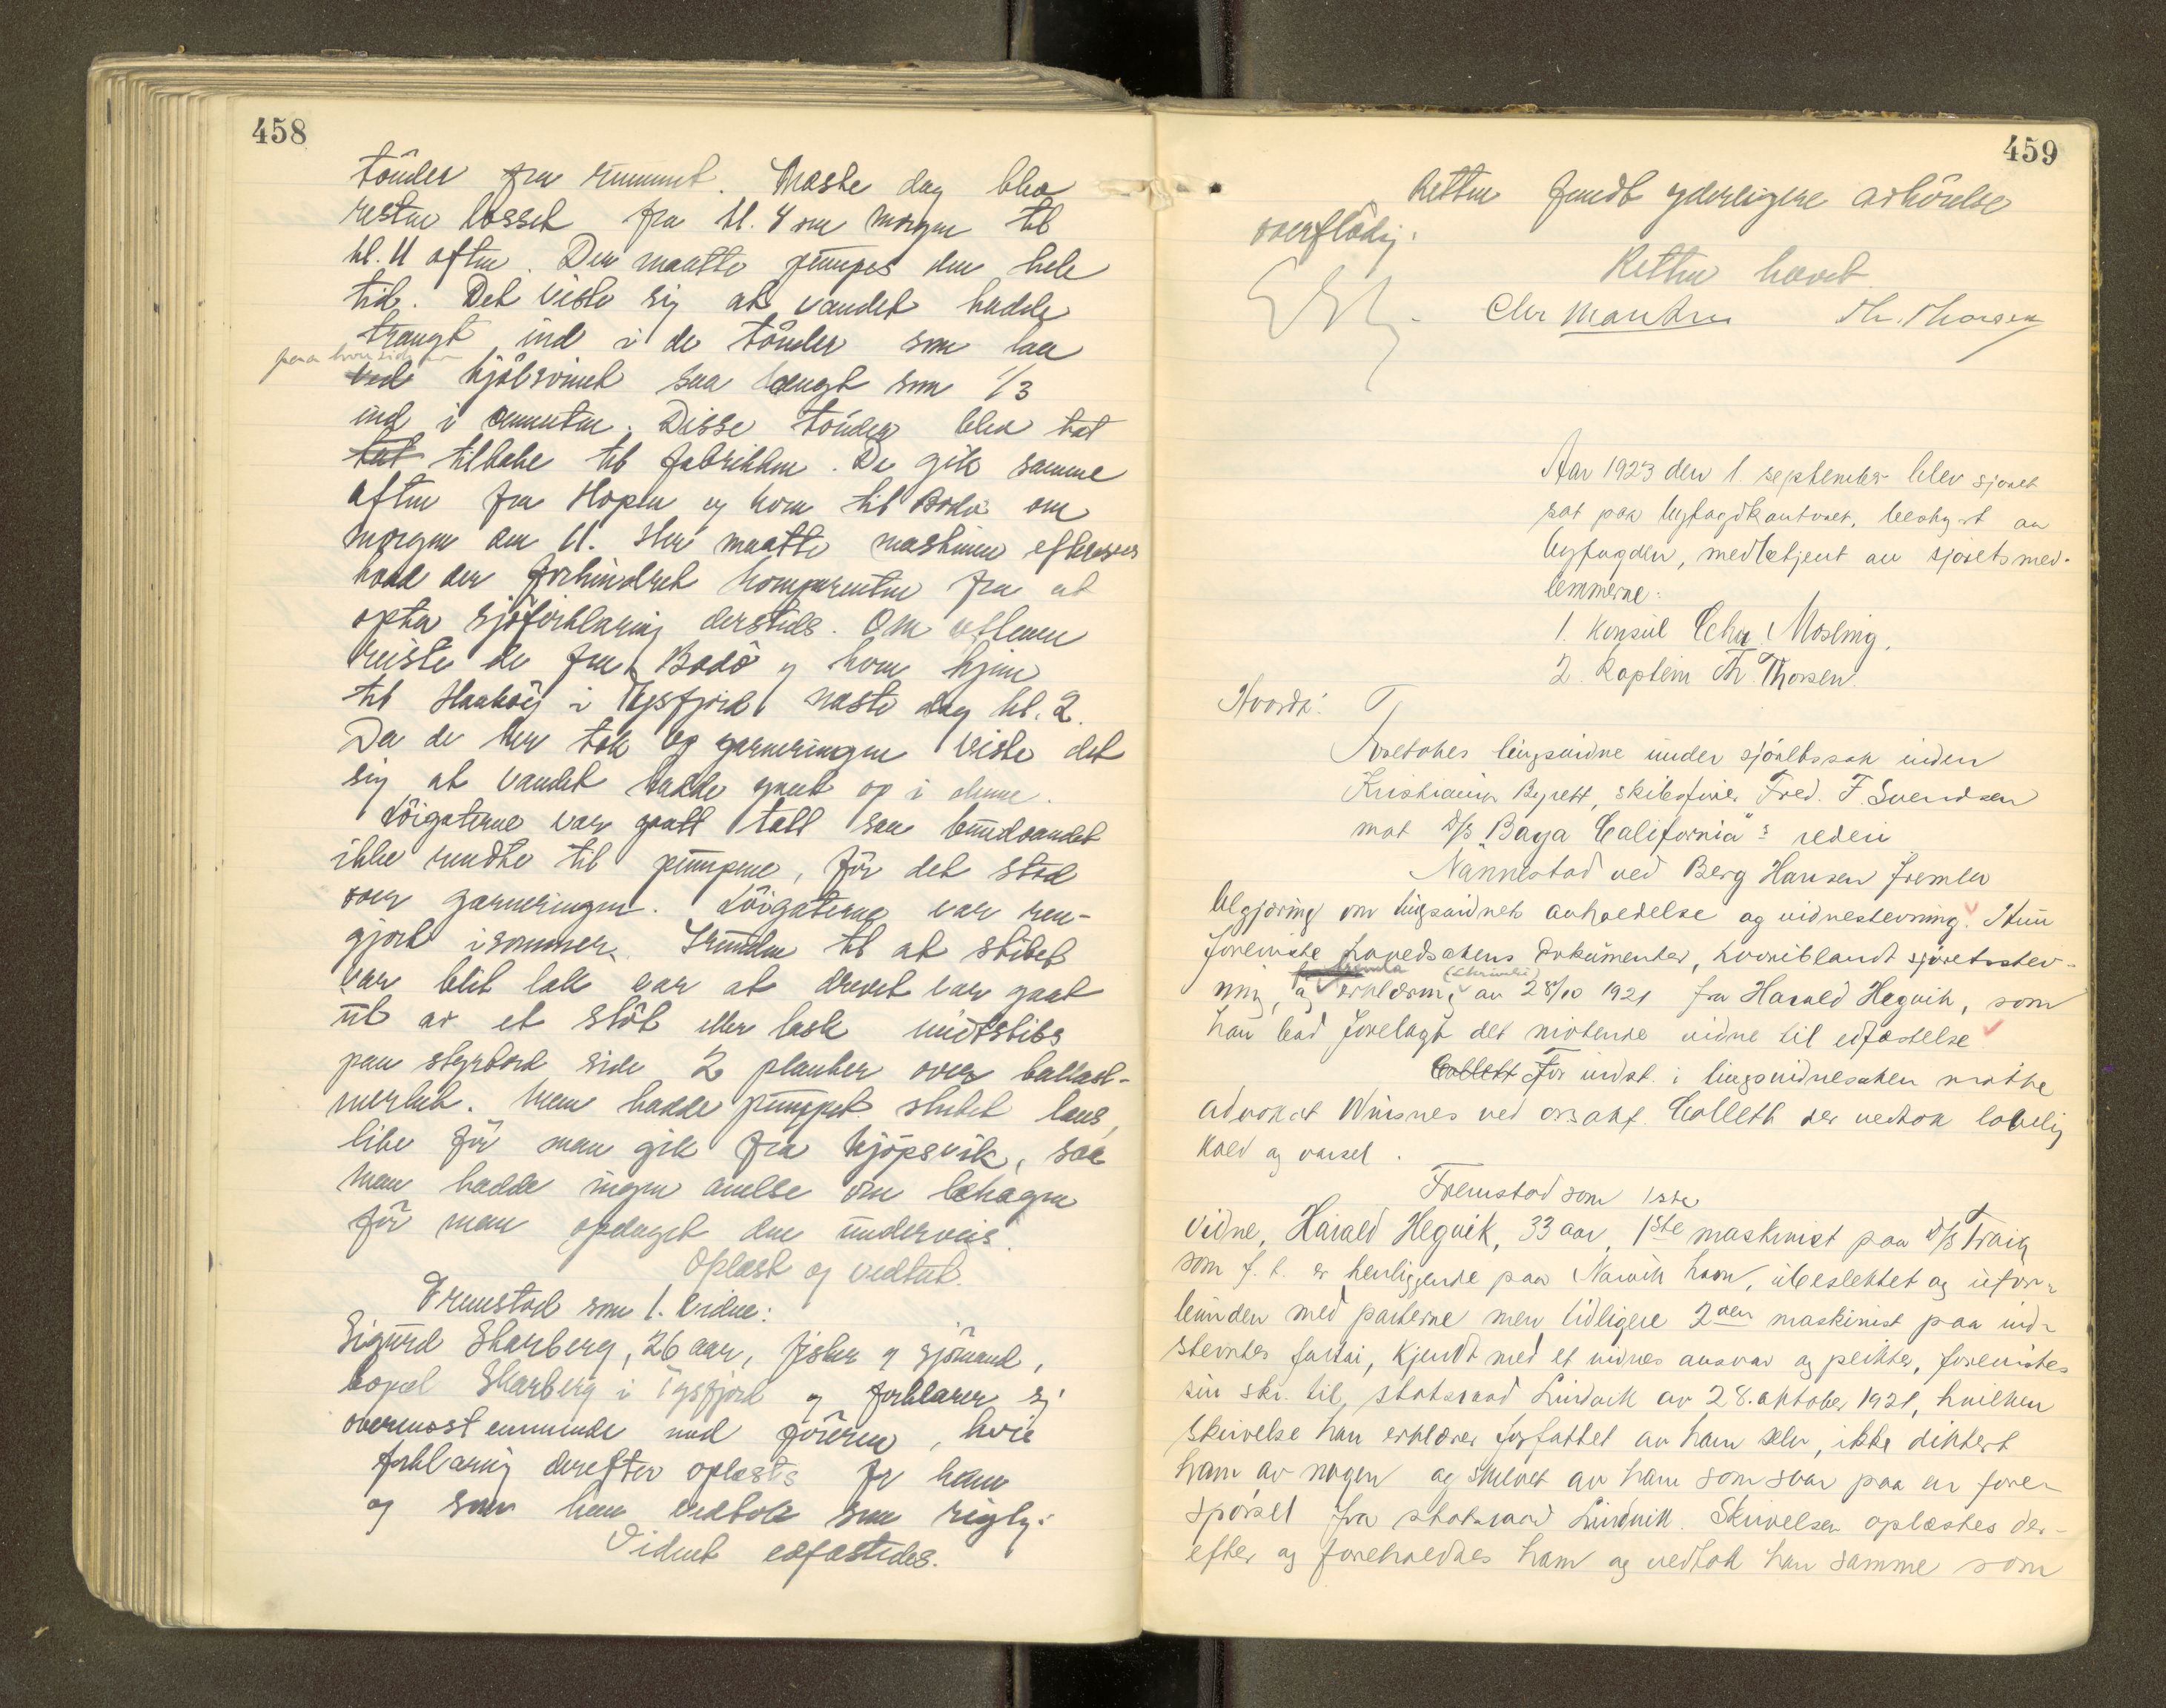 458
tönder fra rummet. Næste dag blev
resten losset fra kl. 4 om morgen til
kl. 11 aften. Der maatte pumpes den hele
tid. Det viste sig at vandet hadde
trangt ind i de tönder som laa
paa hver side av
ved kjölsvinet saa langt som 1/3
ind i cementen. Disse tönder blev tat
tat tilbake til fabrikken. De gik samme
aften fra Hopen og kom til Bodö om
morgen den 11. Her maatte maskinen efterses
hvad der forhindret komparenten fra at
opta sjöforklaring dersteds. Om aftenen
reiste de fra Bodö og kom hjem
til Hauköy i Tysfjord næste dag kl. 2.
Da de her tok op garneringen viste det
sig at vandet hadde gaat op i denne.
Löigaterne var gaatt tatt saa bundvandet
ikke rendte til pumpene, för det stod
over garneringen. Löigaterne var ren-
gjort i sommer. Grunden til at skibet
var blit lak var at drevet var gaat
ut av et stöt eller lask midtskibs
paa styrbord side 2 planker over ballast-
merket. Man hadde pumpet skibet læns,
like för man gik fra Kjöpsvik, saa
man hadde ingen anelse om lekagen
för man opdaget den underveis.
Oplæst og vedtat.
Fremstod som 1. vidne:
Sigurd Skarberg, 26 aar, fisker og sjömand,
bopæl Skarberg i Tysfjord og forklarer sig
overensstemmende med föreren, hvis
forklaring derefter oplæstes for ham
og som han vedtok som rigtig.
Vidnet edfæstedes.
459
Retten fandt yderligere avhörelse
overflödig.
Retten hævet
Chr Mosling Th. Thorsen
Aar 1923 den 1. september blev sjöret
sat paa byfogdkontoret, bestyrt av
byfogden, medbetjent av sjöretsmed-
lemmerne:
1. Konsul Chr. Mosling,
2. Kaptein Th. Thorsen.
Hvorda:
Foretokes tingsvidne under sjöretssak inden
Kristiania Byrett, skibsförer Fred. F. Svendsen
mot D/S "Baya California"s rederi
Nannestad ved Berg Hansen fremla
begjæring om tingsvidnets avholdelse og vidnestevning. Hun
foreviste hovedsakens dokumenter, hvoriblandt sjöretsstev-
ning, og erklæring av 28/10 1921 fra Harald Hegvik, som
han bad forelagt det mötende vidne til edfæstelse
Collett For indst. i tingsvidnesaken mötte
advokat Winsnes ved o.r.sakf. Collett der vedtok lovlig
kald og varsel.
Fremstod som 1ste
vidne, Harald Hegvik, 33 aar, 1ste maskinist paa D/S Traig
som f. t. er henliggende paa Narvik havn, ubeslektet og ufor-
bunden med parterne men tidligere 2den maskinist paa ind-
stevntes fartöi, kjendt med et vidnes ansvar og plikter, forevistes
sin skr. til statsraad Lindvik av 28. oktober 1921, hvilken
skrivelse han erklærer forfattet av ham selv, ikke diktert
ham av nogen og skrevet av ham som svar paa en fore-
spörsel fra statsraad Lindvik. Skrivelsen oplæstes der-
efter og foreholdtes ham og vedtok han samme som